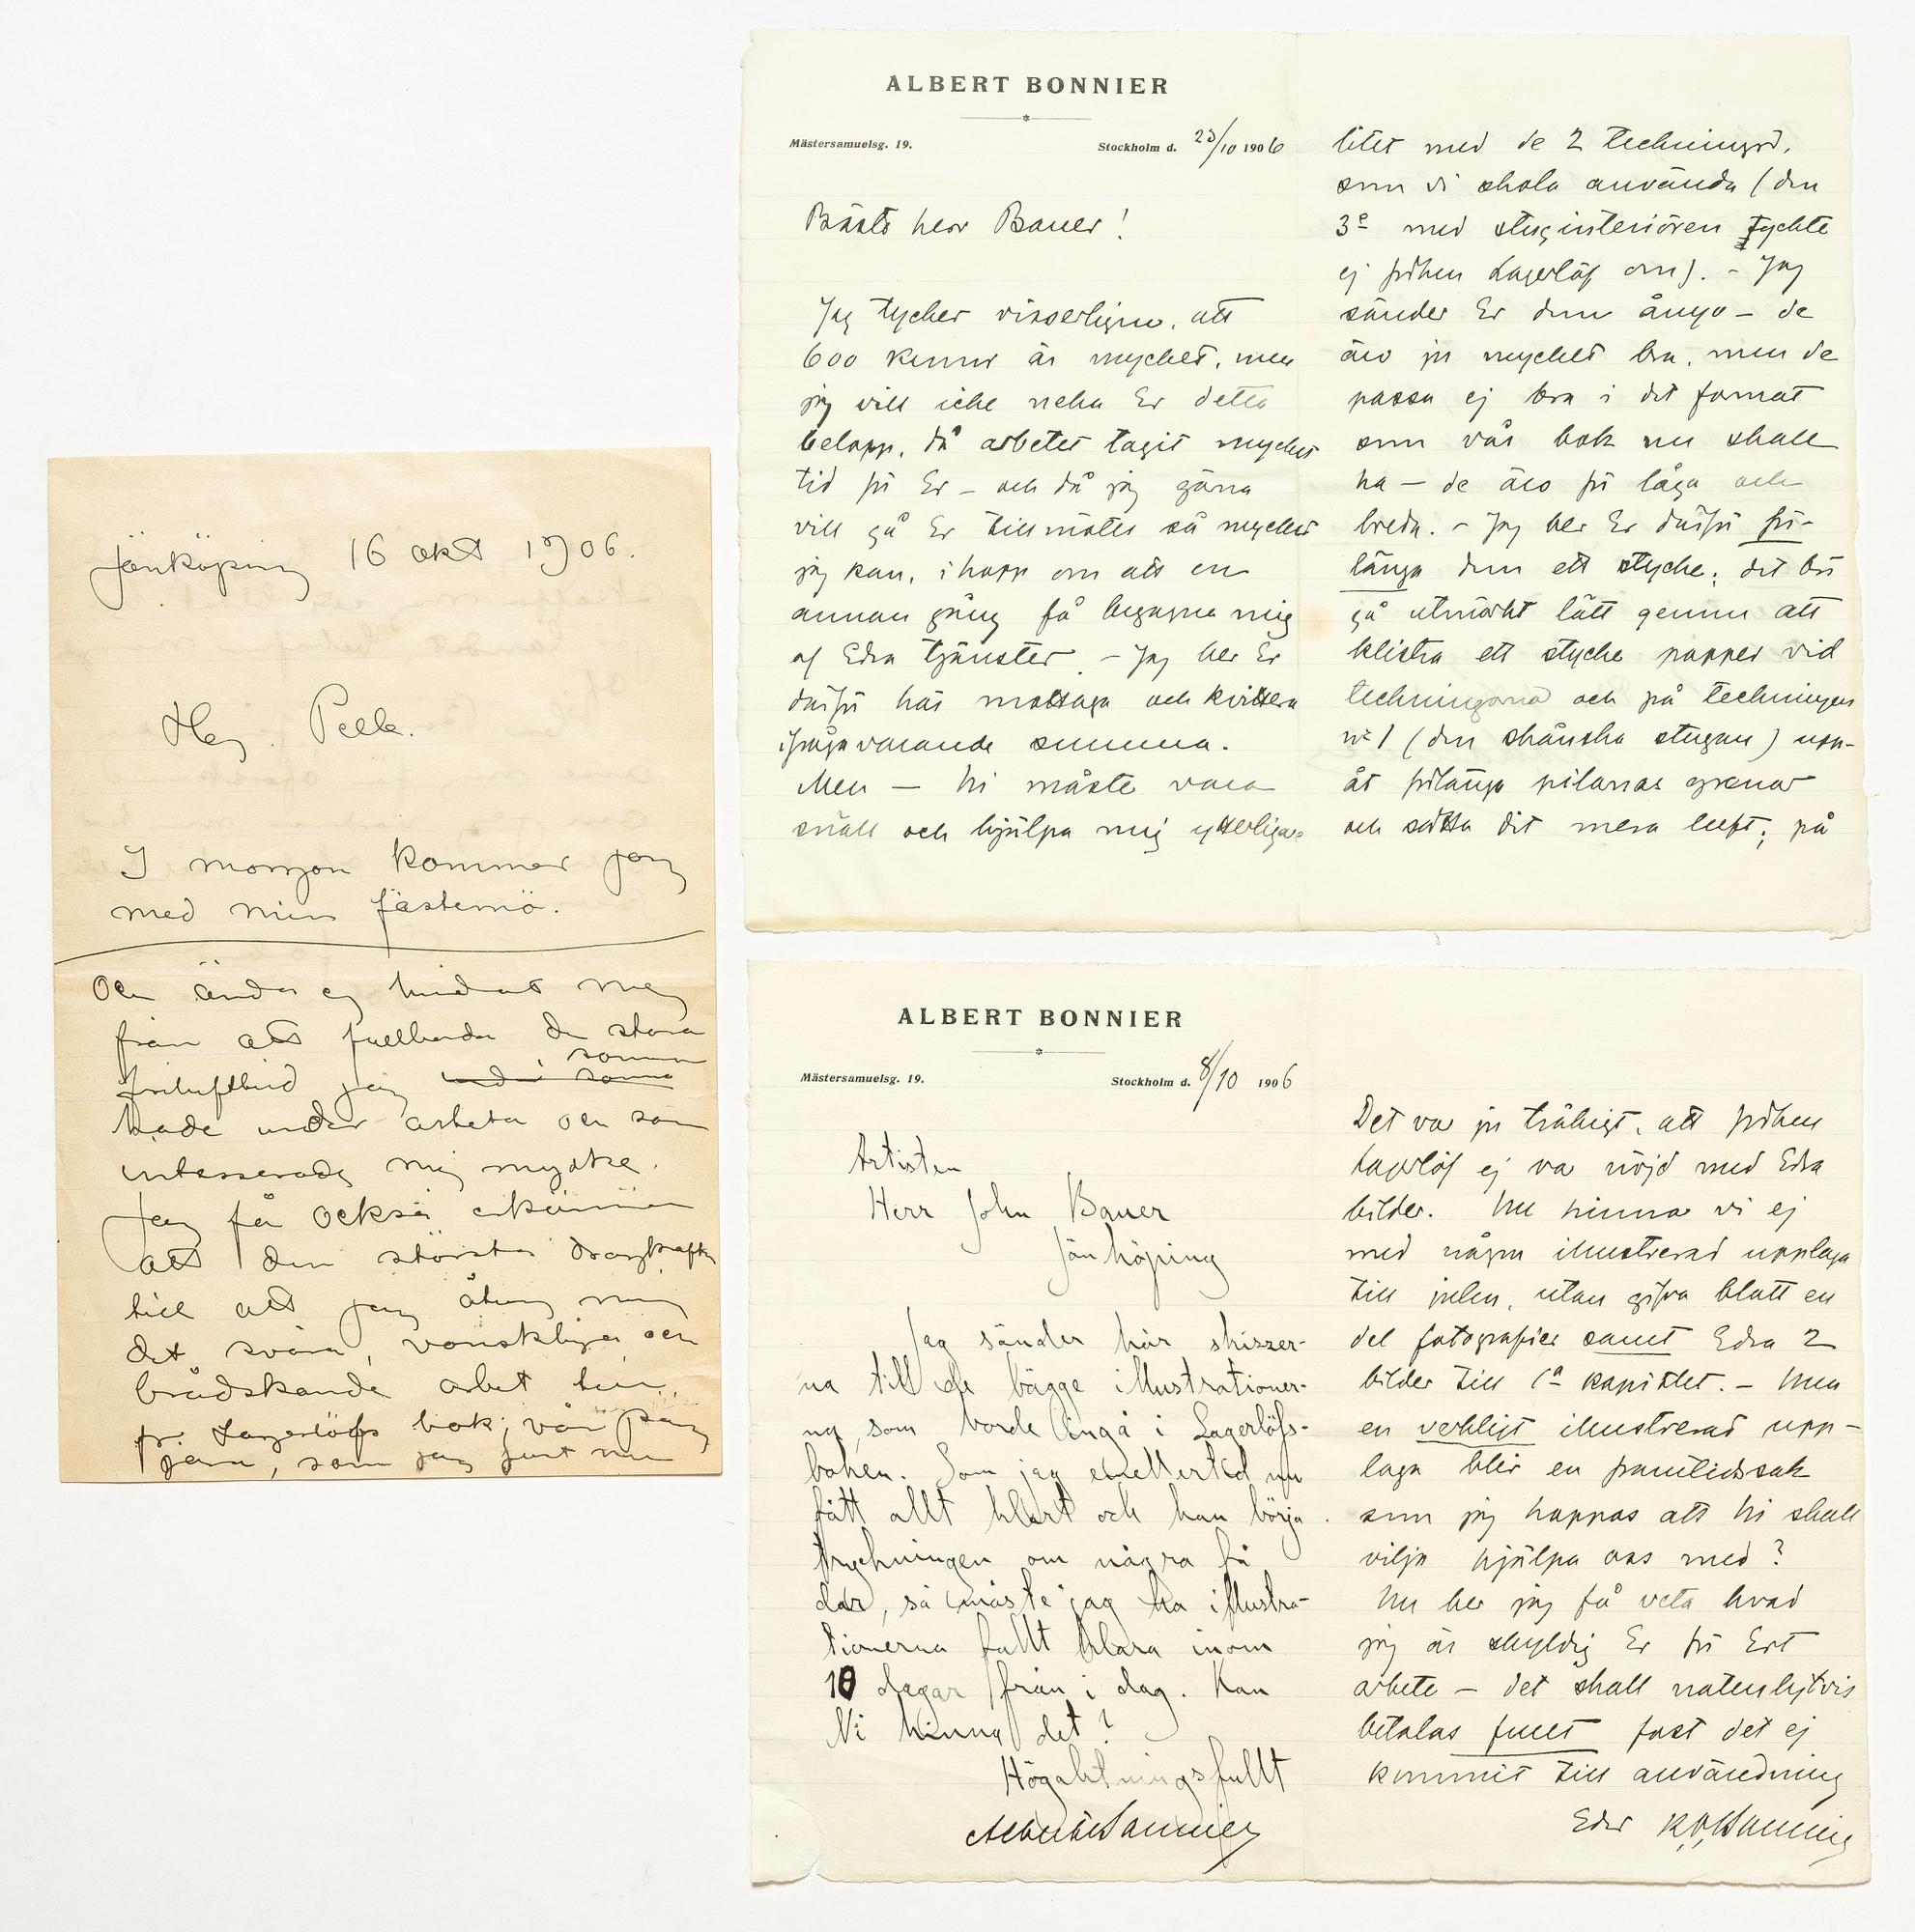 Jönköping 16 okt 1906.
Hej. Pelle.
I morgon kommer jag
med min fästemö.
Och ända ej hindrat mig
från att fullborda de stora
friluftbild jag i somma
hade under arbeta och som
interesserade mig mycke.
Jag få också erkänna
att den största dragkraften
till att jag åtog mig
det svåra, vanskliga och
brådskande arbet till
fr. Lagerlöfs bok, var pengarna, som jag just nu
ALBERT BONNIER
Mästersamuelsg. 19. Stockholm d. 23/10 1906
Bästa herr Bauer!
Jag tycker visserligen, att
600 kronor är mycket, men
jag vill icke neka Er detta
belopp, då arbetet tagit mycket
tid för Er – och då jag gärna
vill gå Er till mötes så mycket
jag kan, i hopp om att en
annan gång få begagna mig
af Edra tjänster. – Jag ber Er
därför här mottaga och kvittera
ifrågavarande summa.
Men – Ni måste vara
snäll och hjälpa mig ytterliga-
litet med de 2 teckningar,
som vi skola använda (den
3e med stuginteriören tyckte
ej fröken Lagerlöf om). – Jag
sänder Er dem ånyo – de
äro ju mycket bra, men de
passa ej bra i det format
som vår bok nu skall
ha – de äro för låga och
breda. – Jag ber Er därför för-
länga dem ett stycke; det bör
gå utmärkt lätt genom att
klistra ett stycke papper vid
teckningarna och på teckningen
no 1 (den skånska stugan) upp-
åt förlänga pilarnas grenar
och sätta dit mera luft; på
ALBERT BONNIER
Mästersamuelsg. 19. Stockholm d. 8/10 1906
Artisten
Herr John Bauer
Jönköping
Jag sänder här skizzer-
na till de bägge illustrationer-
na, som borde ingå i Lagerlöfs-
boken. Som jag emellertid nu
fått allt klart och kan börja
tryckningen om några få
dar, så måste jag ha illustra-
tionerna fullt klara inom
10 dagar från i dag. Kan
Ni hinna det?
Högaktningsfullt
Albert Bonnier
Det var ju tråkigt, att fröken
Lagerlöf ej var nöjd med Edra
bilder. Nu hinna vi ej
med någon illustrerad upplaga
till julen, utan gifva blott en
del fotografier samt Edra 2
bilder till 1a kapitlet. – Men
en verkligt illustrerad upp-
laga blir en framtidssak
som jag hoppas att Ni skall
vilja hjälpa oss med?
Nu ber jag få veta hvad
jag är skyldig Er för Ert
arbete – det skall naturligtvis
betalas fullt fast det ej
kommit till användning
Eder K.O. Bonnier